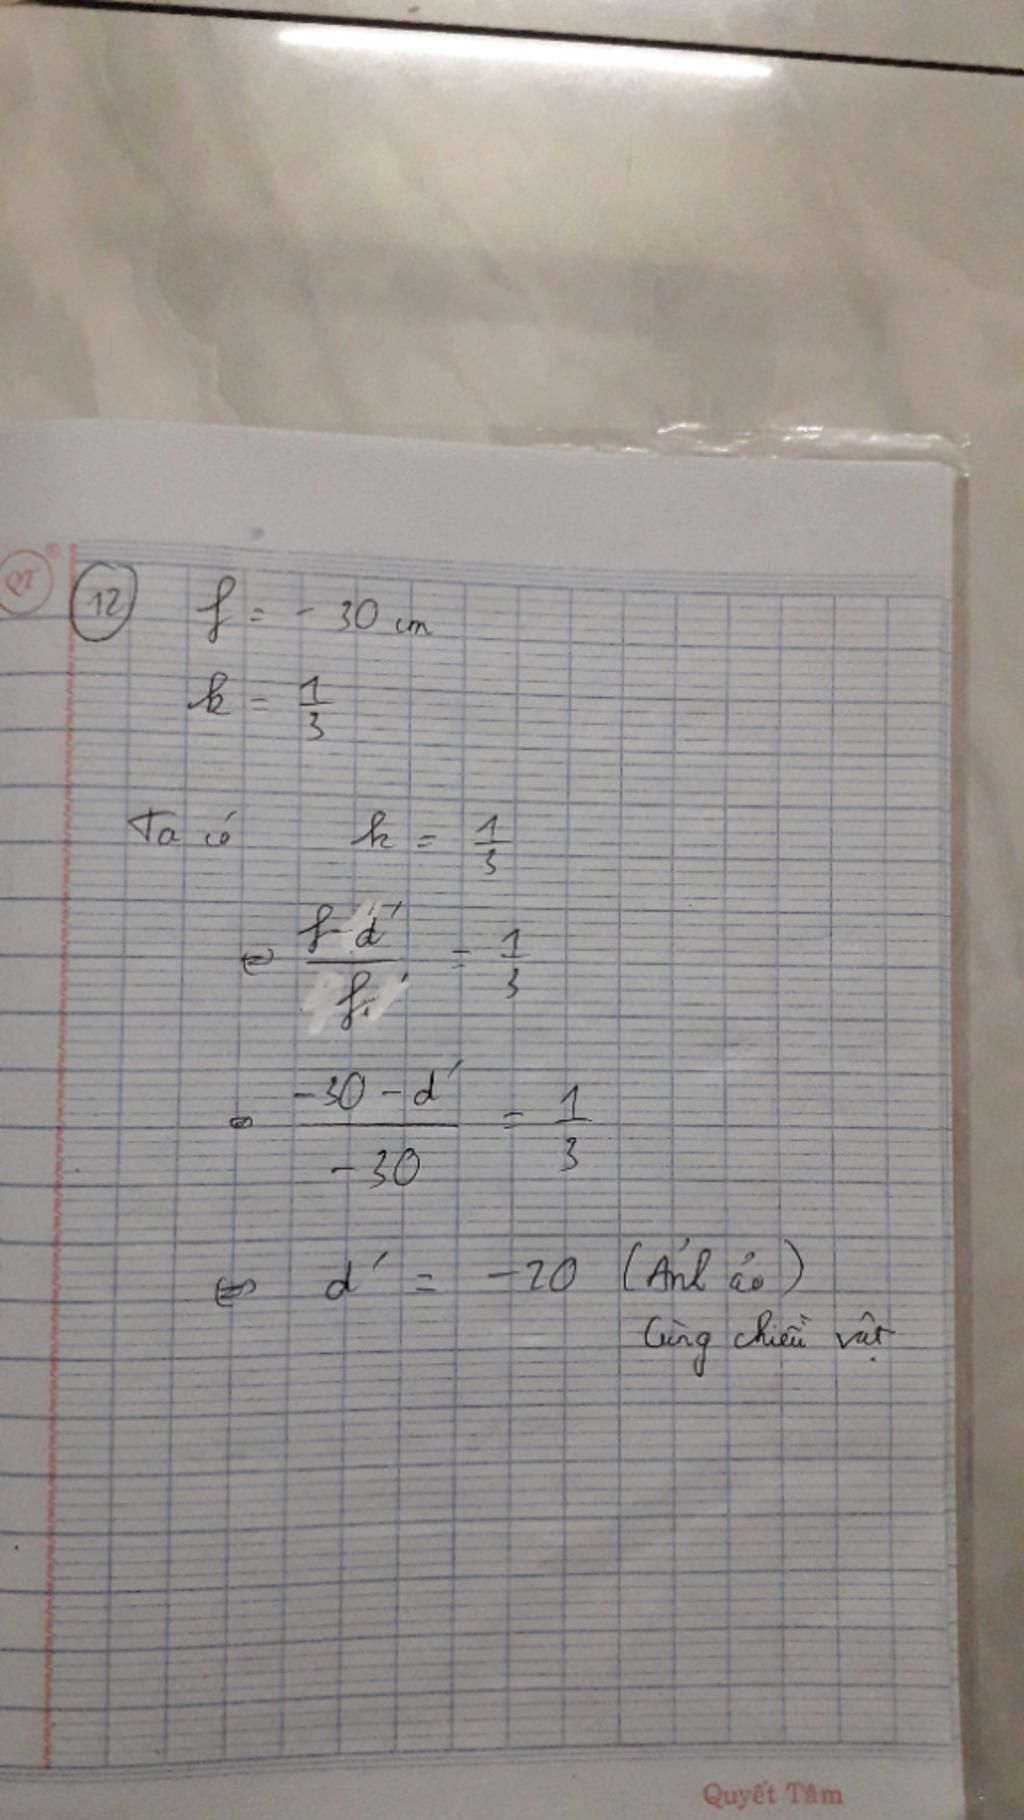 QT
12 f = - 30 cm
k = 1/3
Ta có k = 1/3
⇔ (f - d')/f = 1/3
⇔ (-30 - d')/-30 = 1/3
⇔ d' = -20 (Ảnh ảo)
Cùng chiều vật
Quyết Tâm